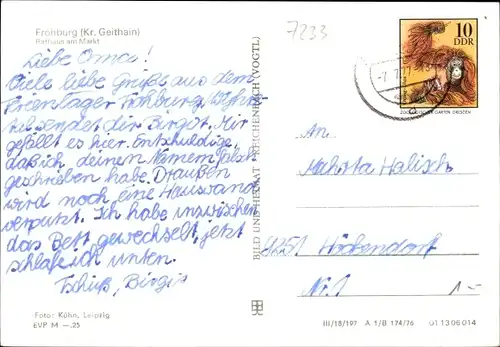 Frohburg (Kr. Geithain)
Rathaus am Markt
7233
Liebe Oma!
Viele liebe Grüße aus dem
Ferienlager Frohburg
sendet dir Birgit. Mir
gefällt es hier. Entschuldige,
daß ich deinen Namen falsch
geschrieben habe. Draußen
wird noch eine Hauswand
verputzt. Ich habe inzwischen
das Bett gewechselt, jetzt
schlafe ich unten.
Tschüß, Birgit
Foto: Kühn, Leipzig
EVP M —.25
BILD UND HEIMAT REICHENBACH (VOGTL)
10
DDR
ZOOLOGISCHER GARTEN DRESDEN
An
Halisch
Nr. 1
1,-
III/18/197 A 1/B 174/76 01 13 06 014